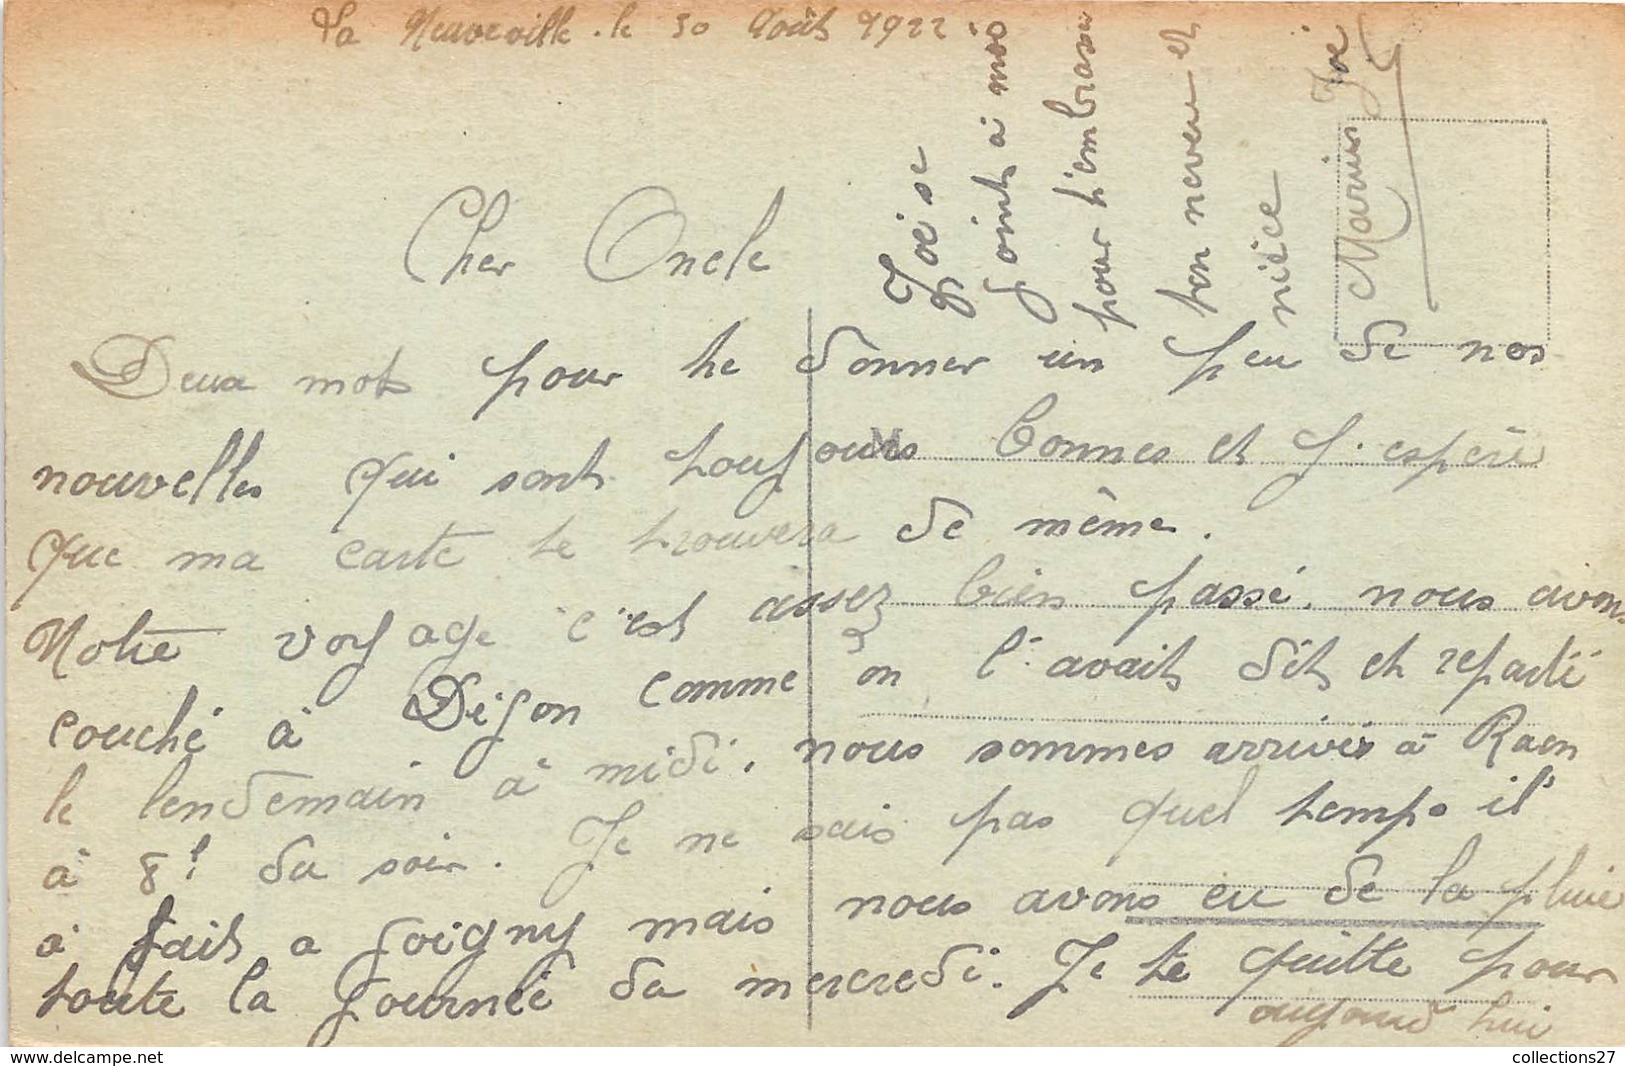 La Neuveville. le 30 Août 1922.
Cher Oncle
Deux mots pour te donner un peu de nos
nouvelles qui sont toujours bonnes et j'espère
que ma carte te trouvera de même.
Notre voyage c'est assez bien passé. nous avons
couché à Dijon comme on l'avait dit et reparti
le lendemain à midi. nous sommes arrivés à Raon
à 8h du soir. Je ne sais pas quel temps il
à fait a Joigny mais nous avons eu de la pluie
toute la journée du mercredi. Je te quitte pour
aujourd'hui
Joise
joint à moi
pour t'embrasser
ton neveu et
nièce
Marius
collections27